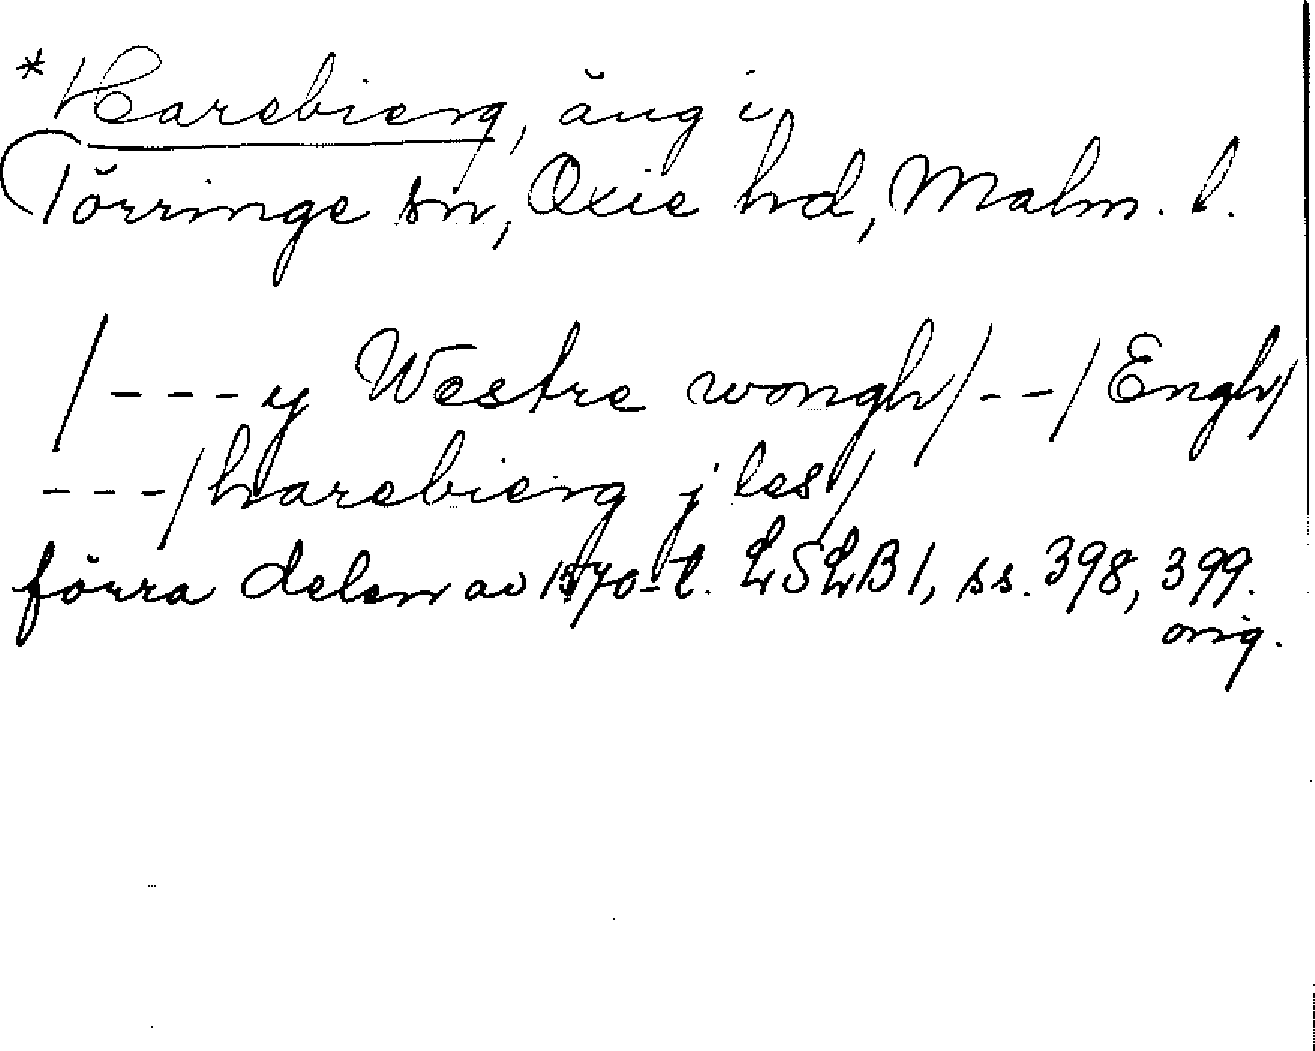 *Harebierg, äng i
Törringe sn, Oxie hd, Malm. l.
/---y Westre wongh/--/Engh/
---/harebierg j les/
förra delen av 1570-t. LSLB 1, ss. 398, 399.
orig.